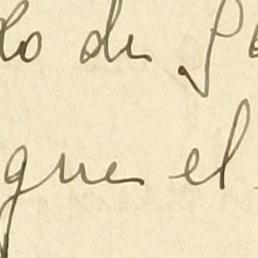 do de
que el